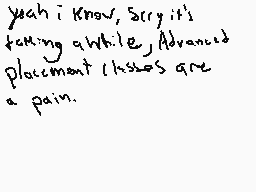 yeah i know, Sorry it's
taking a while, Advanced
placement classes are
a pain.